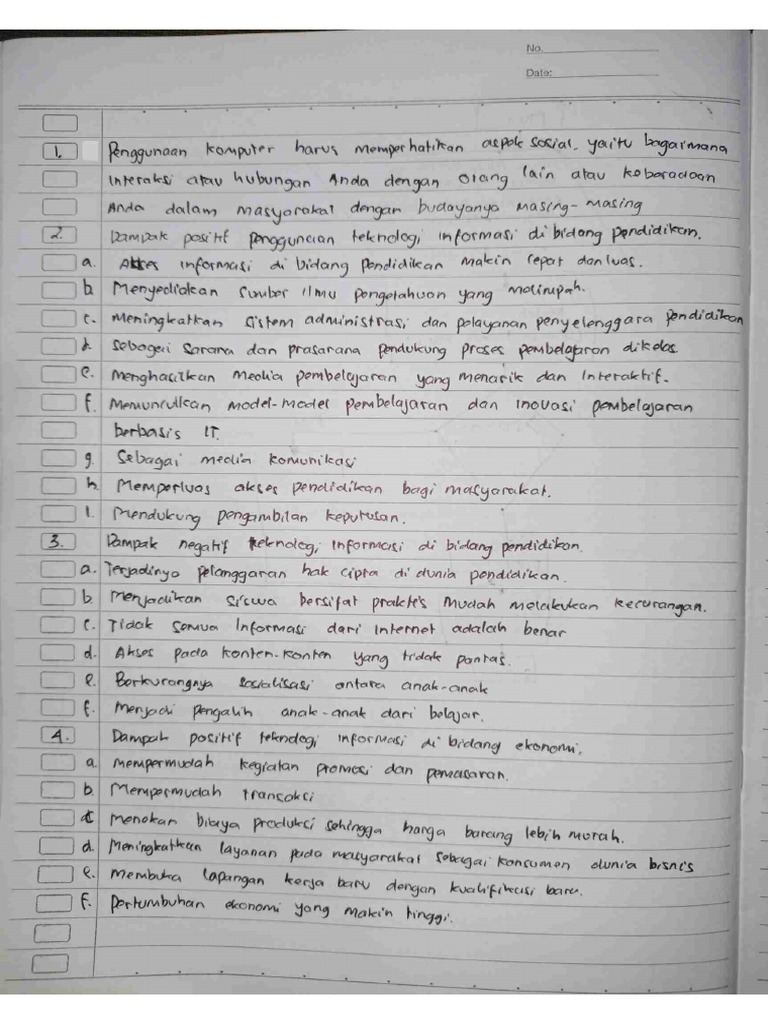 No.
Date:
1. Penggunaan komputer harus memperhatikan aspek sosial, yaitu bagaimana
Interaksi atau hubungan Anda dengan orang lain atau keberadaan
Anda dalam masyarakat dengan budayanya masing-masing
2. Dampak positif penggunaan teknologi informasi di bidang pendidikan.
a. Akses informasi di bidang pendidikan makin cepat dan luas.
b. Menyediakan sumber ilmu pengetahuan yang melimpah.
c. Meningkatkan sistem administrasi dan pelayanan penyelenggara pendidikan
d. Sebagai sarana dan prasarana pendukung proses pembelajaran dikelas.
e. Menghasilkan media pembelajaran yang menarik dan Interaktif.
f. Memunculkan model-model pembelajaran dan inovasi pembelajaran
berbasis IT.
g. Sebagai media komunikasi
h. Memperluas akses pendidikan bagi masyarakat.
I. Mendukung pengambilan keputusan.
3. Dampak negatif teknologi informasi di bidang pendidikan.
a. Terjadinya pelanggaran hak cipta di dunia pendidikan.
b. Menjadikan siswa bersifat praktis mudah melakukan kecurangan.
c. Tidak semua Informasi dari internet adalah benar
d. Akses pada konten-konten yang tidak pantas.
e. Berkurangnya sosialisasi antara anak-anak
f. Menjadi pengalih anak-anak dari belajar.
4. Dampak positif teknologi informasi di bidang ekonomi.
a. mempermudah kegiatan promosi dan pemasaran.
b. Mempermudah transaksi
c. Menekan biaya produksi sehingga harga barang lebih murah.
d. Meningkatkan layanan pada masyarakat sebagai konsumen dunia bisnis
e. Membuka lapangan kerja baru dengan kualifikasi baru.
f. Pertumbuhan ekonomi yang makin tinggi.